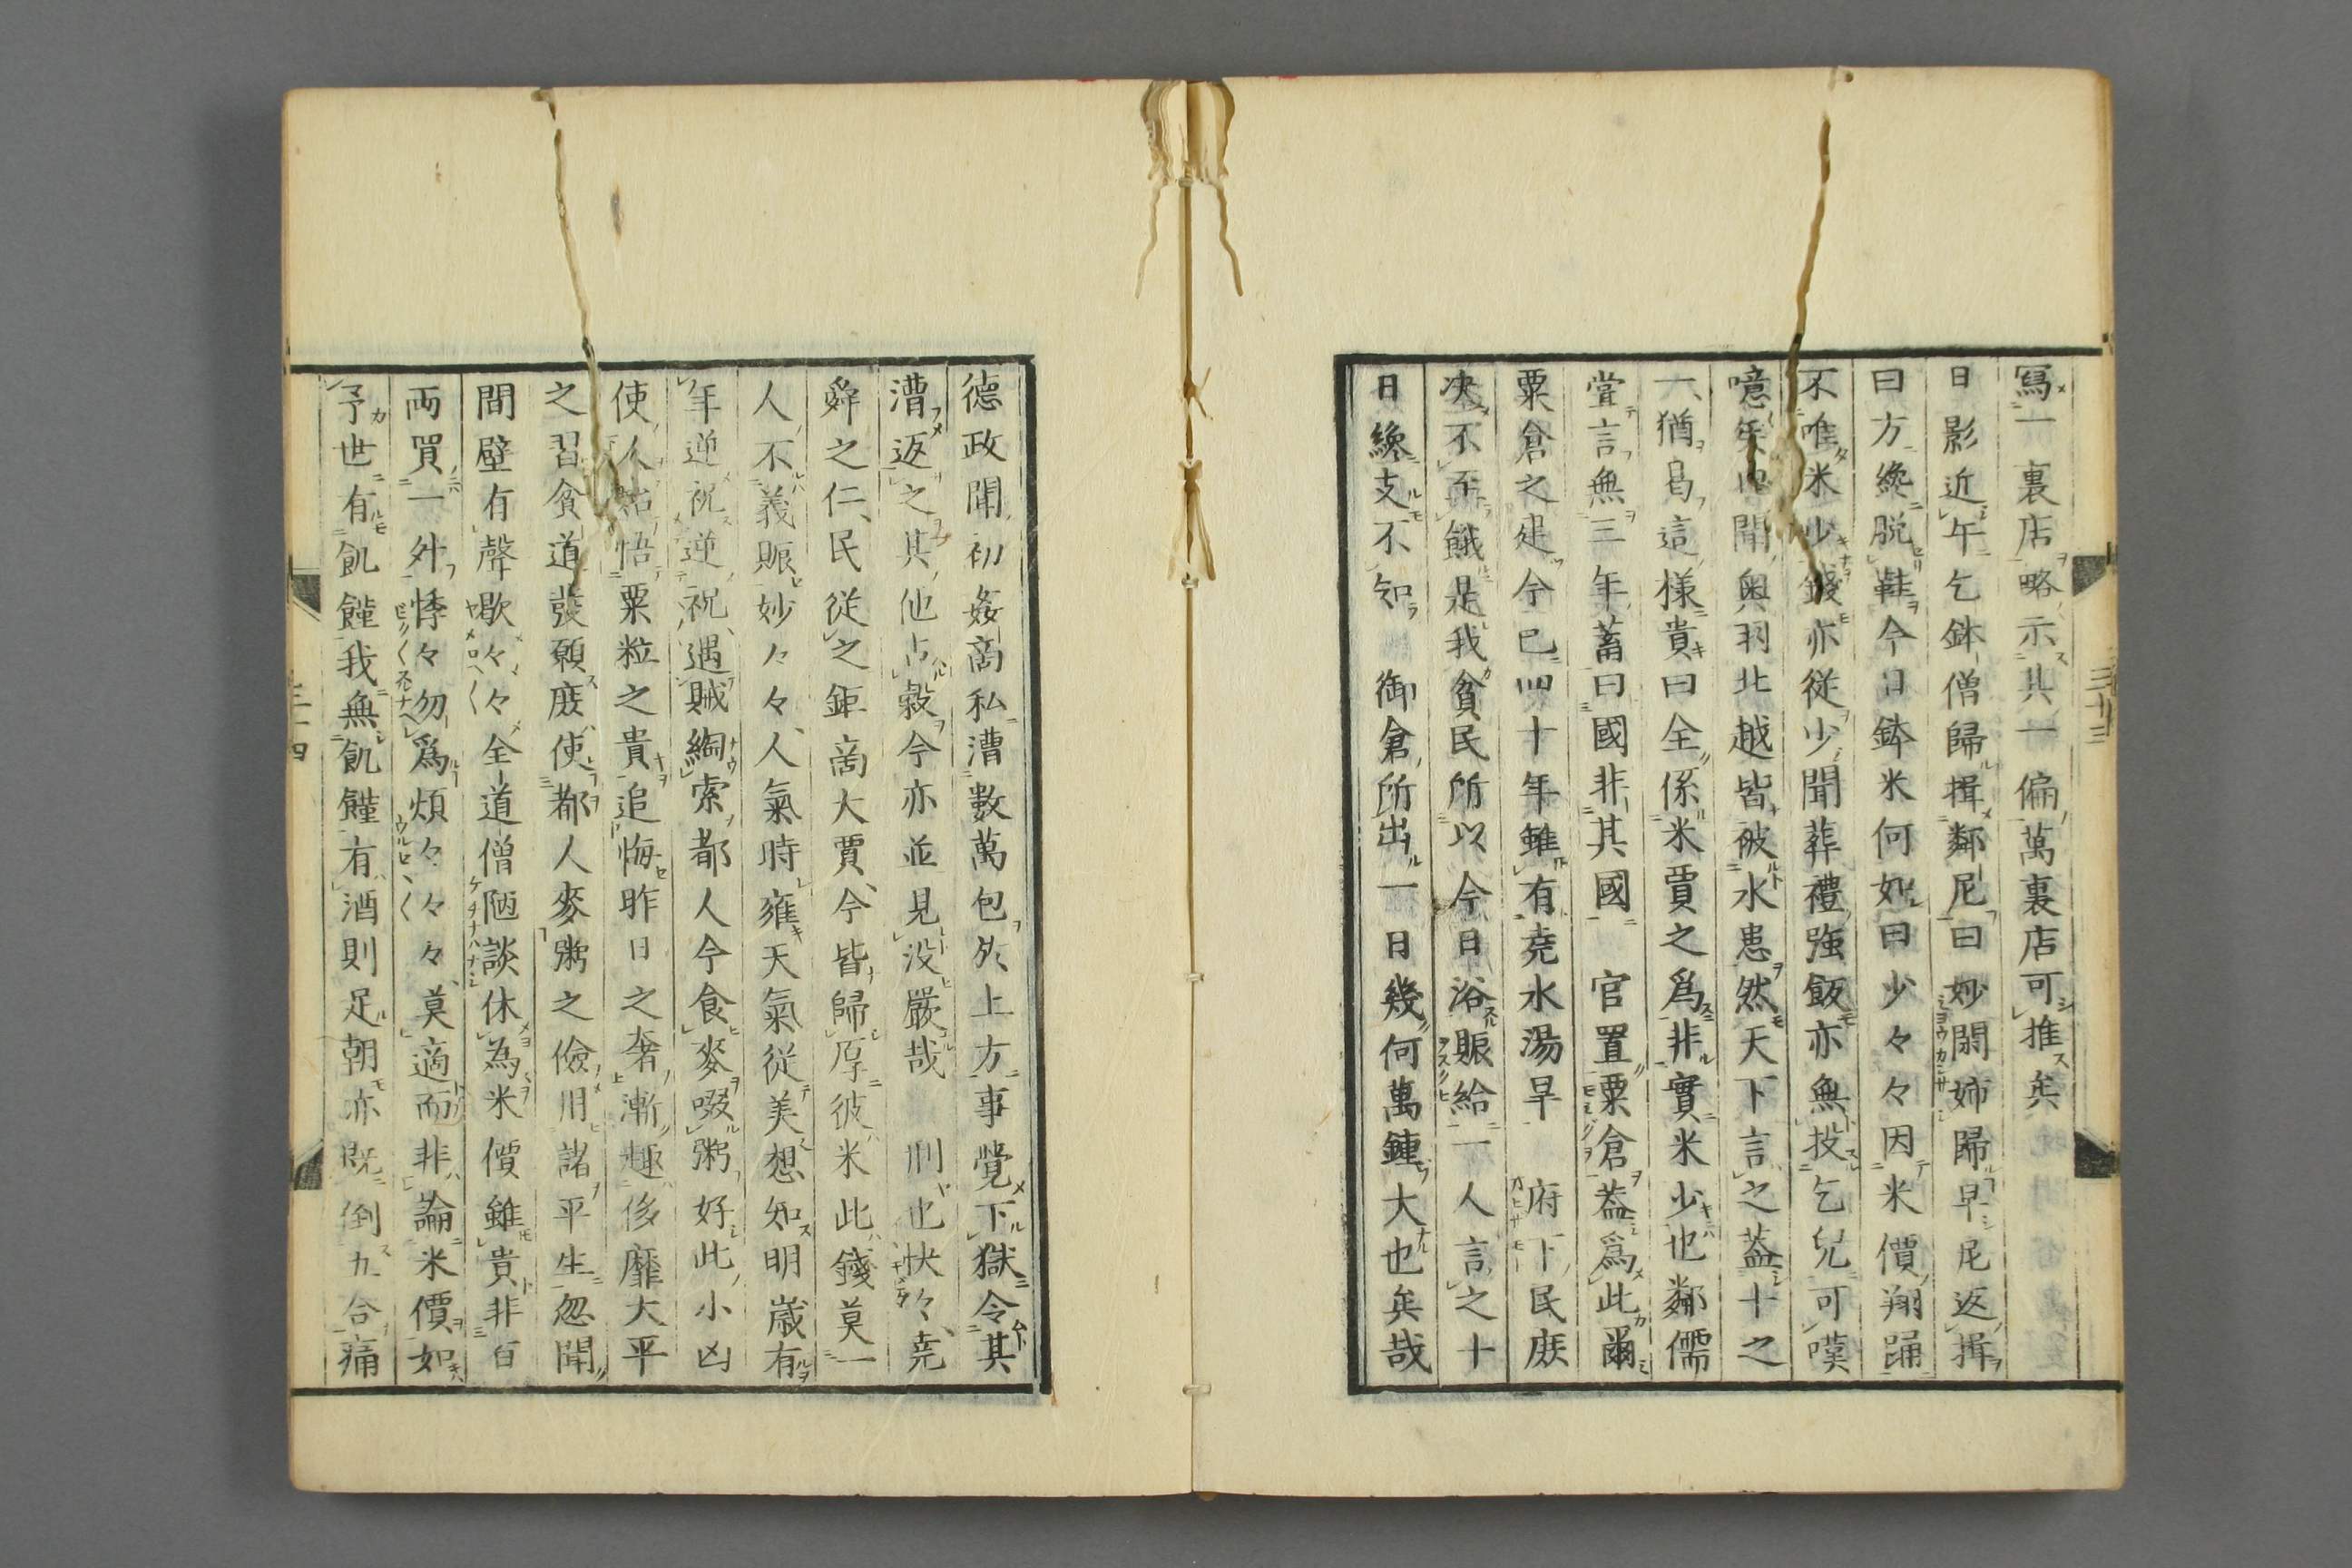 寫一裏店略示其一偏萬裏店可推矣
日影近午乞鉢僧歸揖鄰尼曰妙閑姉歸早尼返揖
曰方纔脱鞋今日鉢米何如曰少々々因米價翔踊
不唯米少錢亦從少聞葬禮強飯亦無技乞兒可嘆
噫矣聞奥羽北越皆被水患然天下言之蓋十之
一猶曷這樣貴曰全係米賈之為非實米少也鄰儒
嘗言無三年蓄曰國非其國 官置粟倉蓋爲此爾
粟倉之建今已四十年雖有堯水湯旱 府下民庶
决不至餓是我貧民所以今日浴賑給一人言之十
日纔支不知 御倉所出一日幾何萬鍾大也矣哉
三十三
德政聞初姦商私漕數萬包外上方事覺下獄令其
漕返之其他占穀今亦並見没嚴哉 刑也快々堯
舜之仁民從之鉅商大賈今皆歸厚彼米此錢莫一
人不義賑妙々々人氣時雍天氣從美想知明歳有
年逆祝逆祝遇賊綯索都人今食麥啜粥好此小凶
使人㸃悟粟粒之貴追悔昨日之奢漸趣侈靡大平
之習貪道發願庶使都人麥粥之儉用諸平生忽聞
間壁有聲歇々々全道僧陋談休為米價雖貴非百
両買一舛悸々勿爲煩々々々莫適而非論米價如
予世有飢饉我無飢饉有酒則足朝亦既倒九合痛
三十四